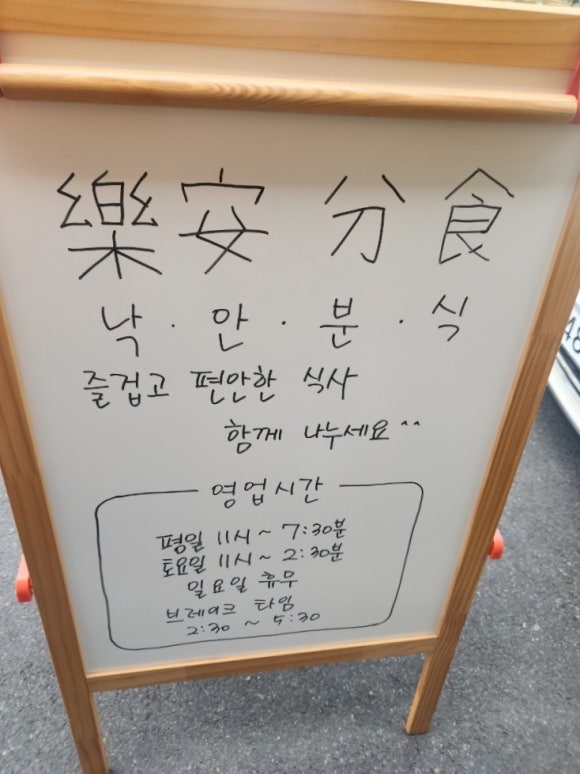 樂安 分食
낙 · 안 · 분 · 식
즐겁고 편안한 식사
함께 나누세요^^
영업시간
평일 11시~ 7:30분
토요일 11시~ 2:30분
일요일 휴무
브레이크 타임
2:30 ~ 5:30